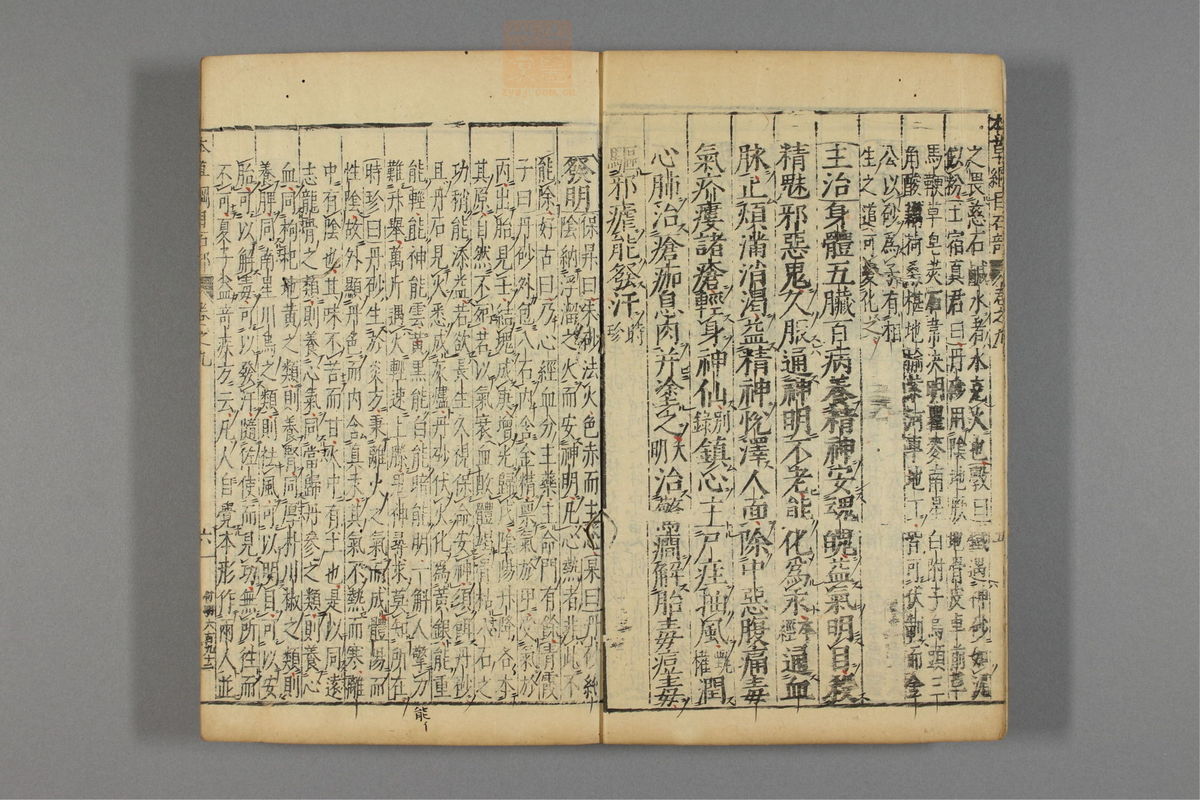 本草綱目石部 卷之九
之畏慈石鹹水者水克火也斅曰鐵遇神砂如泥
似粉土宿真君曰丹砂用陰地厥地骨皮車前草
馬鞭草皂莢石韋決明瞿麥南星白附子烏頭三
角酸藕荷桑椹地榆紫河車地丁皆可伏制而金
公以砂為子有相
生之道可變化之
主治身體五臟百病養精神安魂魄益氣明目殺
精魅邪惡鬼久服通神明不老能化為汞經通血
脉止煩滿消渴益精神悅澤人面除中惡腹痛毒
氣疥瘻諸瘡輕身神仙別錄鎮心主尸疰抽風權甄潤
心肺治瘡痂息肉并塗之大明治驚癇解胎毒痘毒
驅邪瘧能發汗時珍
發明保昇曰朱砂法火色赤而主心杲曰丹砂純
陰納浮溜之火而安神明凡心熱者非此不
能除好古曰乃心經血分主藥主命門有餘青霞
子曰丹砂外包八石內含金精稟氣於甲受氣於
丙出胎見壬結塊成庚增光歸戊陰陽升降各本
其原自然不死若以氣衰血敗體竭骨枯八石之
功稍能添益若欲長生久視保命安神須餌丹砂
且丹石見火悉成灰燼丹砂伏火化為黃銀能重
能輕能神能靈能黑能白能暗能明一斛人擎力
難升舉萬斤遇火輕速上騰鬼神尋求莫知所在
時珍曰丹砂生於炎方秉離火之氣而成體陽而
性陰故外顯丹色而內含真汞其氣不熱而寒離
中有陰也其味不苦而甘火中有土也是以同遠
志龍骨之類則養心氣同當歸丹參之類則養心
血同枸杞地黃之類則養腎同厚朴川椒之類則
養脾同南星川烏之類則祛風可以明目可以安
胎可以解毒可以發汗隨佐使而見功無所往而
不可夏子益奇疾方云凡人自覺本形作兩人並
能
本草綱目石部 卷之九 六